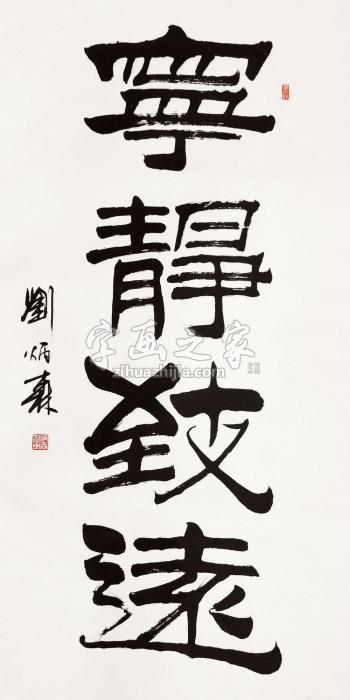 寧靜致遠
劉炳森
字画之家
zihuazhijia.com